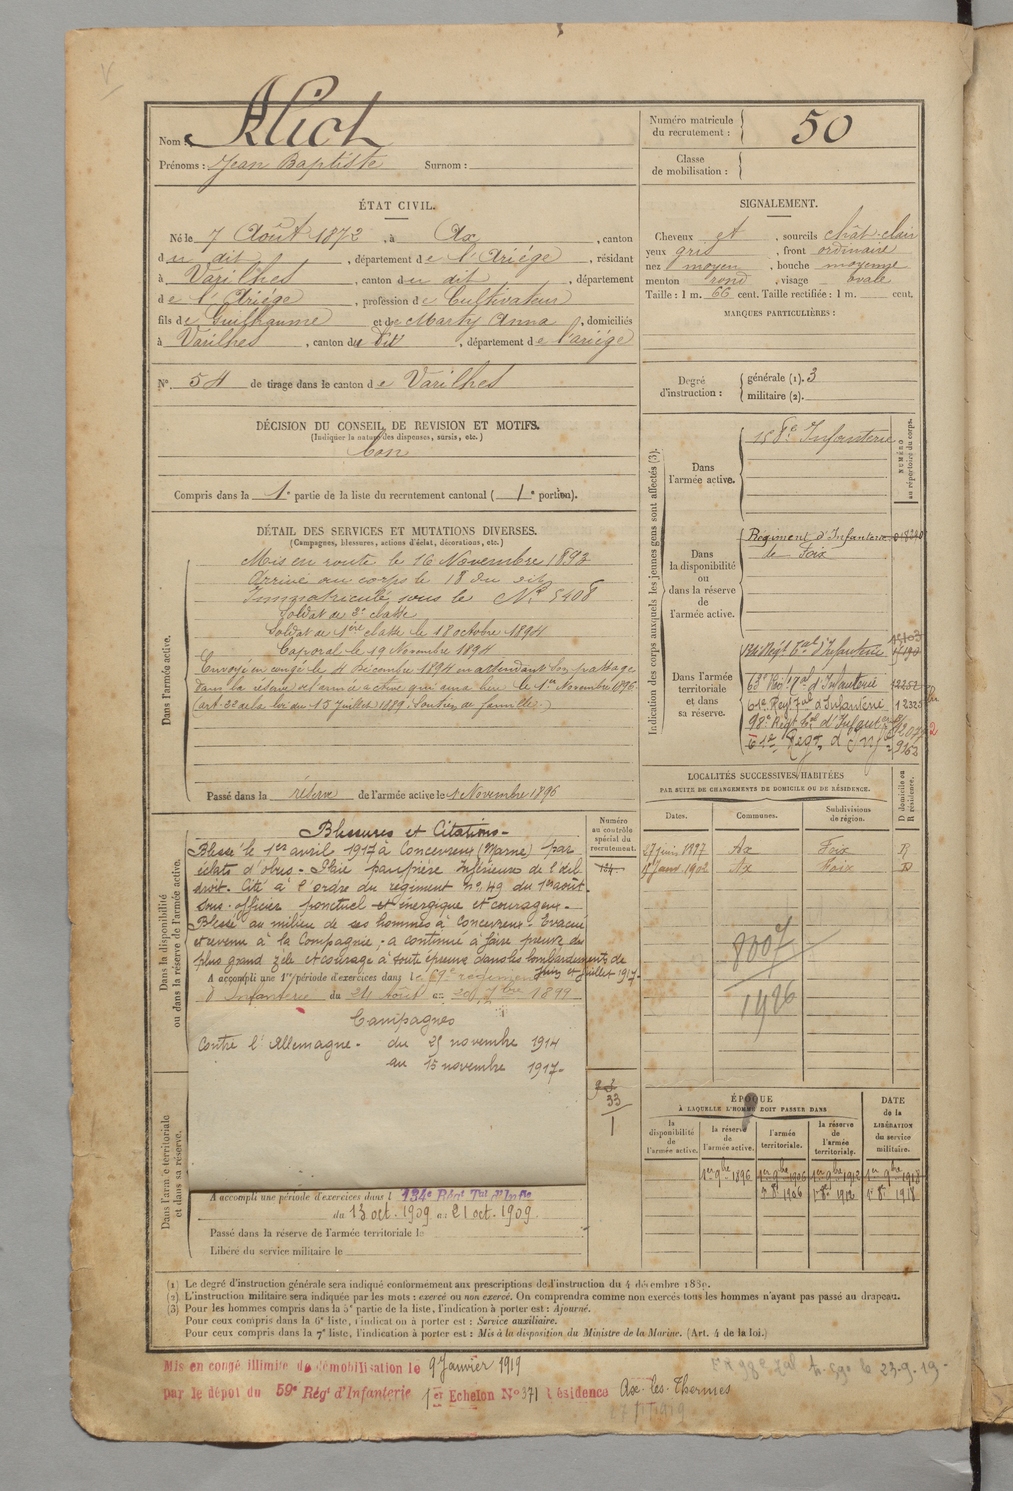 Nom : Alich
Prénoms : Jean Baptiste Surnom :
Numéro matricule du recrutement : 50
Classe de mobilisation :
ÉTAT CIVIL.
Né le 7 Août 1872, à Ax, canton
du dit, département de l'Ariége, résidant
à Varilhes, canton du dit, département
de l'Ariège, profession de Cultivateur
fils de Guilhaume et de Marty Anna, domiciliés
à Varilhes, canton du dit, département de l'ariége
N° 54 de tirage dans le canton de Varilhes
SIGNALEMENT.
Cheveux et, sourcils chât-clair
yeux gris, front ordinaire
nez moyen, bouche moyenne
menton rond, visage ovale
Taille : 1 m. 66 cent. Taille rectifiée : 1 m. cent.
MARQUES PARTICULIÈRES :
Degré d'instruction : générale (1). 3
militaire (2).
DÉCISION DU CONSEIL DE REVISION ET MOTIFS.
(Indiquer la nature des dispenses, sursis, etc.)
bon
Compris dans la 1e partie de la liste du recrutement cantonal (1e portion).
DÉTAIL DES SERVICES ET MUTATIONS DIVERSES.
(Campagnes, blessures, actions d'éclat, décorations, etc.)
Dans l'armée active.
Mis en route le 16 Novembre 1893
Arrivé au corps le 18 du dit
Immatriculé sous le N° 5408
Soldat de 2e classe
Soldat de 1ère classe le 18 octobre 1894
Caporal le 19 Novembre 1894
Envoyé en congé le 4 Décembre 1894 en attendant son passage
dans la réserve de l'armée active qui aura lieu le 1er Novembre 1896
(art. 22 de la loi du 15 Juillet 1889 : Soutien de famille)
Passé dans la réserve de l'armée active le 1 Novembre 1896
Indication des corps auxquels les jeunes gens sont affectés (3).
NUMÉRO au répertoire du corps.
Dans l'armée active.
158e Infanterie
Dans la disponibilité ou dans la réserve de l'armée active.
Régiment d'Infanterie
de Foix
Dans l'armée territoriale et dans sa réserve.
63e Régt d'Infanterie 12251
61e Régt d'Infanterie 12325
98e Régt d'Infanterie
9162
LOCALITÉS SUCCESSIVES HABITÉES
PAR SUITE DE CHANGEMENTS DE DOMICILE OU DE RÉSIDENCE.
Dates. Communes. Subdivisions de région. D domicile ou R résidence.
27 juin 1897 Ax Foix D
4 Janv 1902 Ax Foix D
8007
1926
Dans la disponibilité ou dans la réserve de l'armée active.
Numéro au contrôle spécial du recrutement.
Blessures et Citations -
Blessé le 1er avril 1917 à Concevreux (Marne) par
éclats d'obus - Plaie paupière inférieure de l'œil
droit. Cité à l'ordre du régiment n° 49 du 1er août
sous-officier ponctuel et énergique et courageux -
Blessé au milieu de ses hommes à Concevreux. Evacué
et revenu à la Compagnie, a continué à faire preuve du
plus grand zèle et courage à toute épreuve dans les bombardements de
Juin et Juillet 1917
A accompli une 1re période d'exercices dans le 59e régiment
d'Infanterie du 24 Août au 20 7bre 1899
Campagnes
Contre l'Allemagne - du 25 novembre 1914
au 15 novembre 1917 -
33
1
Dans l'armée territoriale et dans sa réserve.
A accompli une période d'exercices dans l 134e Régt Tal d'Infie
du 13 oct. 1909 au 21 oct. 1909
Passé dans la réserve de l'armée territoriale le
Libéré du service militaire le
ÉPOQUE
À LAQUELLE L'HOMME DOIT PASSER DANS
la disponibilité de l'armée active. la réserve de l'armée active. l'armée territoriale. la réserve de l'armée territoriale. DATE de la LIBÉRATION du service militaire.
1er 9bre 1896 1er 9bre 1906 1er 9bre 1912 1er 9bre 1918
1er 8bre 1906 1er 8bre 1912 1er 8bre 1918
(1) Le degré d'instruction générale sera indiqué conformément aux prescriptions de l'instruction du 4 décembre 1889.
(2) L'instruction militaire sera indiquée par les mots : exercé ou non exercé. On comprendra comme non exercés tous les hommes n'ayant pas passé au drapeau.
(3) Pour les hommes compris dans la 5e partie de la liste, l'indication à porter est : Ajourné.
Pour ceux compris dans la 6e liste, l'indication à porter est : Service auxiliaire.
Pour ceux compris dans la 7e liste, l'indication à porter est : Mis à la disposition du Ministre de la Marine. (Art. 4 de la loi.)
Mis en congé illimité de démobilisation le 9 Janvier 1919
par le dépôt du 59e Régt d'Infanterie 1er Echelon N° 371 Résidence Ax-les-Thermes